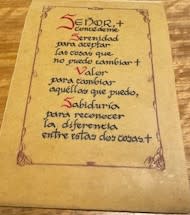 SEÑOR,
concédeme
Serenidad
para aceptar
las cosas que
no puedo cambiar
Valor
para cambiar
aquellas que puedo,
Sabiduría
para reconocer
la diferencia
entre estas dos cosas